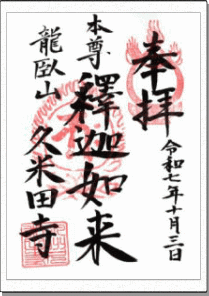 奉拝
令和七年十月三日
本尊
釋迦如来
龍臥山
久米田寺